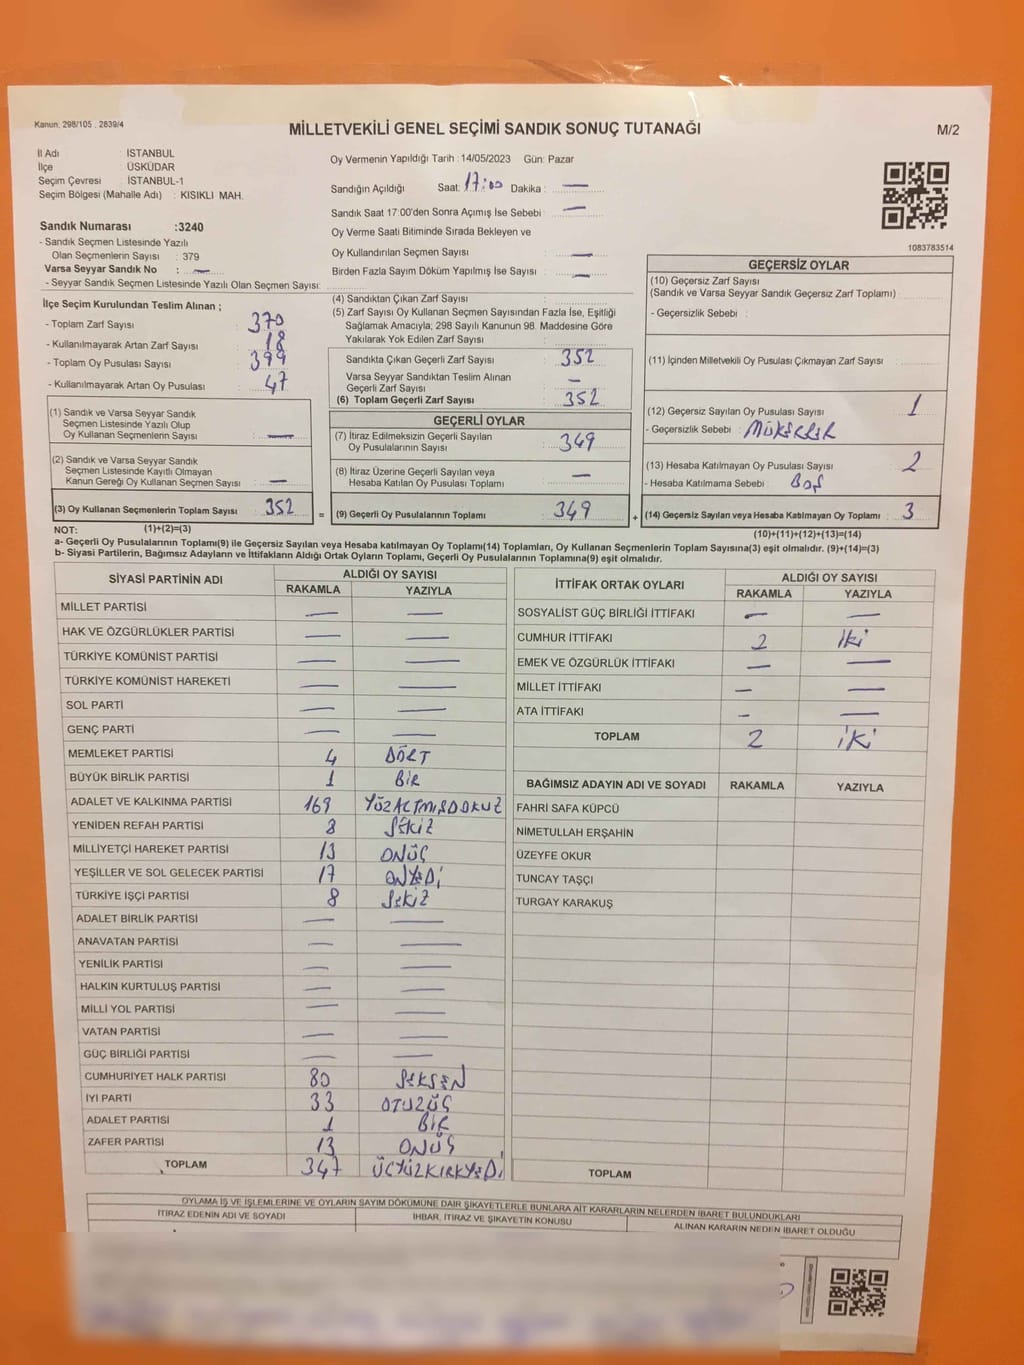 Kanun: 298/105 , 2839/4
MİLLETVEKİLİ GENEL SEÇİMİ SANDIK SONUÇ TUTANAĞI
M/2
İl Adı : İSTANBUL
İlçe : ÜSKÜDAR
Seçim Çevresi : İSTANBUL-1
Seçim Bölgesi (Mahalle Adı) : KISIKLI MAH.
Sandık Numarası :3240
- Sandık Seçmen Listesinde Yazılı
Olan Seçmenlerin Sayısı : 379
Varsa Seyyar Sandık No : —
- Seyyar Sandık Seçmen Listesinde Yazılı Olan Seçmen Sayısı:
Oy Vermenin Yapıldığı Tarih :14/05/2023 Gün: Pazar
Sandığın Açıldığı Saat: 17:00 Dakika : —
Sandık Saat 17:00'den Sonra Açımış İse Sebebi : —
Oy Verme Saati Bitiminde Sırada Bekleyen ve
Oy Kullandırılan Seçmen Sayısı : —
Birden Fazla Sayım Döküm Yapılmış İse Sayısı : —
1083783514
İlçe Seçim Kurulundan Teslim Alınan ;
- Toplam Zarf Sayısı : 370
- Kullanılmayarak Artan Zarf Sayısı : 18
- Toplam Oy Pusulası Sayısı : 399
- Kullanılmayarak Artan Oy Pusulası : 47
(1) Sandık ve Varsa Seyyar Sandık
Seçmen Listesinde Yazılı Olup
Oy Kullanan Seçmenlerin Sayısı : —
(2) Sandık ve Varsa Seyyar Sandık
Seçmen Listesinde Kayıtlı Olmayan
Kanun Gereği Oy Kullanan Seçmen Sayısı : —
(3) Oy Kullanan Seçmenlerin Toplam Sayısı : 352
(4) Sandıktan Çıkan Zarf Sayısı :
(5) Zarf Sayısı Oy Kullanan Seçmen Sayısından Fazla İse, Eşitliği
Sağlamak Amacıyla; 298 Sayılı Kanunun 98. Maddesine Göre
Yakılarak Yok Edilen Zarf Sayısı :
Sandıkta Çıkan Geçerli Zarf Sayısı : 352
Varsa Seyyar Sandıktan Teslim Alınan
Geçerli Zarf Sayısı : —
(6) Toplam Geçerli Zarf Sayısı : 352
GEÇERLİ OYLAR
(7) İtiraz Edilmeksizin Geçerli Sayılan
Oy Pusulalarının Sayısı : 349
(8) İtiraz Üzerine Geçerli Sayılan veya
Hesaba Katılan Oy Pusulası Toplamı : —
= (9) Geçerli Oy Pusulalarının Toplamı : 349
GEÇERSİZ OYLAR
(10) Geçersiz Zarf Sayısı
(Sandık ve Varsa Seyyar Sandık Geçersiz Zarf Toplamı) :
- Geçersizlik Sebebi :
(11) İçinden Milletvekili Oy Pusulası Çıkmayan Zarf Sayısı :
(12) Geçersiz Sayılan Oy Pusulası Sayısı : 1
- Geçersizlik Sebebi : MÜKERRER
(13) Hesaba Katılmayan Oy Pusulası Sayısı : 2
- Hesaba Katılmama Sebebi : Boş
+ (14) Geçersiz Sayılan veya Hesaba Katılmayan Oy Toplamı : 3
NOT: (1)+(2)=(3)
(10)+(11)+(12)+(13)=(14)
a- Geçerli Oy Pusulalarının Toplamı(9) ile Geçersiz Sayılan veya Hesaba katılmayan Oy Toplamı(14) Toplamları, Oy Kullanan Seçmenlerin Toplam Sayısına(3) eşit olmalıdır. (9)+(14)=(3)
b- Siyasi Partilerin, Bağımsız Adayların ve İttifakların Aldığı Ortak Oyların Toplamı, Geçerli Oy Pusulalarının Toplamına(9) eşit olmalıdır.
SİYASİ PARTİNİN ADI ALDIĞI OY SAYISI
RAKAMLA YAZIYLA
MİLLET PARTİSİ — —
HAK VE ÖZGÜRLÜKLER PARTİSİ — —
TÜRKİYE KOMÜNİST PARTİSİ — —
TÜRKİYE KOMÜNİST HAREKETİ — —
SOL PARTİ — —
GENÇ PARTİ — —
MEMLEKET PARTİSİ 4 DÖRT
BÜYÜK BİRLİK PARTİSİ 1 BİR
ADALET VE KALKINMA PARTİSİ 169 YÜZALTMIŞDOKUZ
YENİDEN REFAH PARTİSİ 8 SEKİZ
MİLLİYETÇİ HAREKET PARTİSİ 13 ONÜÇ
YEŞİLLER VE SOL GELECEK PARTİSİ 17 ONYEDİ
TÜRKİYE İŞÇİ PARTİSİ 8 SEKİZ
ADALET BİRLİK PARTİSİ — —
ANAVATAN PARTİSİ — —
YENİLİK PARTİSİ — —
HALKIN KURTULUŞ PARTİSİ — —
MİLLİ YOL PARTİSİ — —
VATAN PARTİSİ — —
GÜÇ BİRLİĞİ PARTİSİ — —
CUMHURİYET HALK PARTİSİ 80 SEKSEN
İYİ PARTİ 33 OTUZÜÇ
ADALET PARTİSİ 1 BİR
ZAFER PARTİSİ 13 ONÜÇ
TOPLAM 347 ÜÇYÜZKIRKYEDİ
İTTİFAK ORTAK OYLARI ALDIĞI OY SAYISI
RAKAMLA YAZIYLA
SOSYALİST GÜÇ BİRLİĞİ İTTİFAKI — —
CUMHUR İTTİFAKI 2 İKİ
EMEK VE ÖZGÜRLÜK İTTİFAKI — —
MİLLET İTTİFAKI — —
ATA İTTİFAKI — —
TOPLAM 2 İKİ
BAĞIMSIZ ADAYIN ADI VE SOYADI RAKAMLA YAZIYLA
FAHRİ SAFA KÜPCÜ
NİMETULLAH ERŞAHİN
ÜZEYFE OKUR
TUNCAY TAŞÇI
TURGAY KARAKUŞ
TOPLAM
OYLAMA İŞ VE İŞLEMLERİNE VE OYLARIN SAYIM DÖKÜMÜNE DAİR ŞİKAYETLERLE BUNLARA AİT KARARLARIN NELERDEN İBARET BULUNDUKLARI
İTİRAZ EDENİN ADI VE SOYADI İHBAR, İTİRAZ VE ŞİKAYETİN KONUSU ALINAN KARARIN NEDEN İBARET OLDUĞU